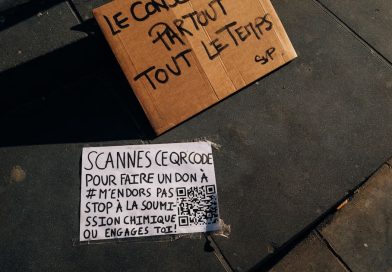 LE CONS
PARTOUT
TOUT LE TEMPS
SVP
SCANNES CE QR CODE
POUR FAIRE UN DON À
# M'ENDORS PAS
STOP À LA SOUMI-
SSION CHIMIQUE
OU ENGAGES TOI!